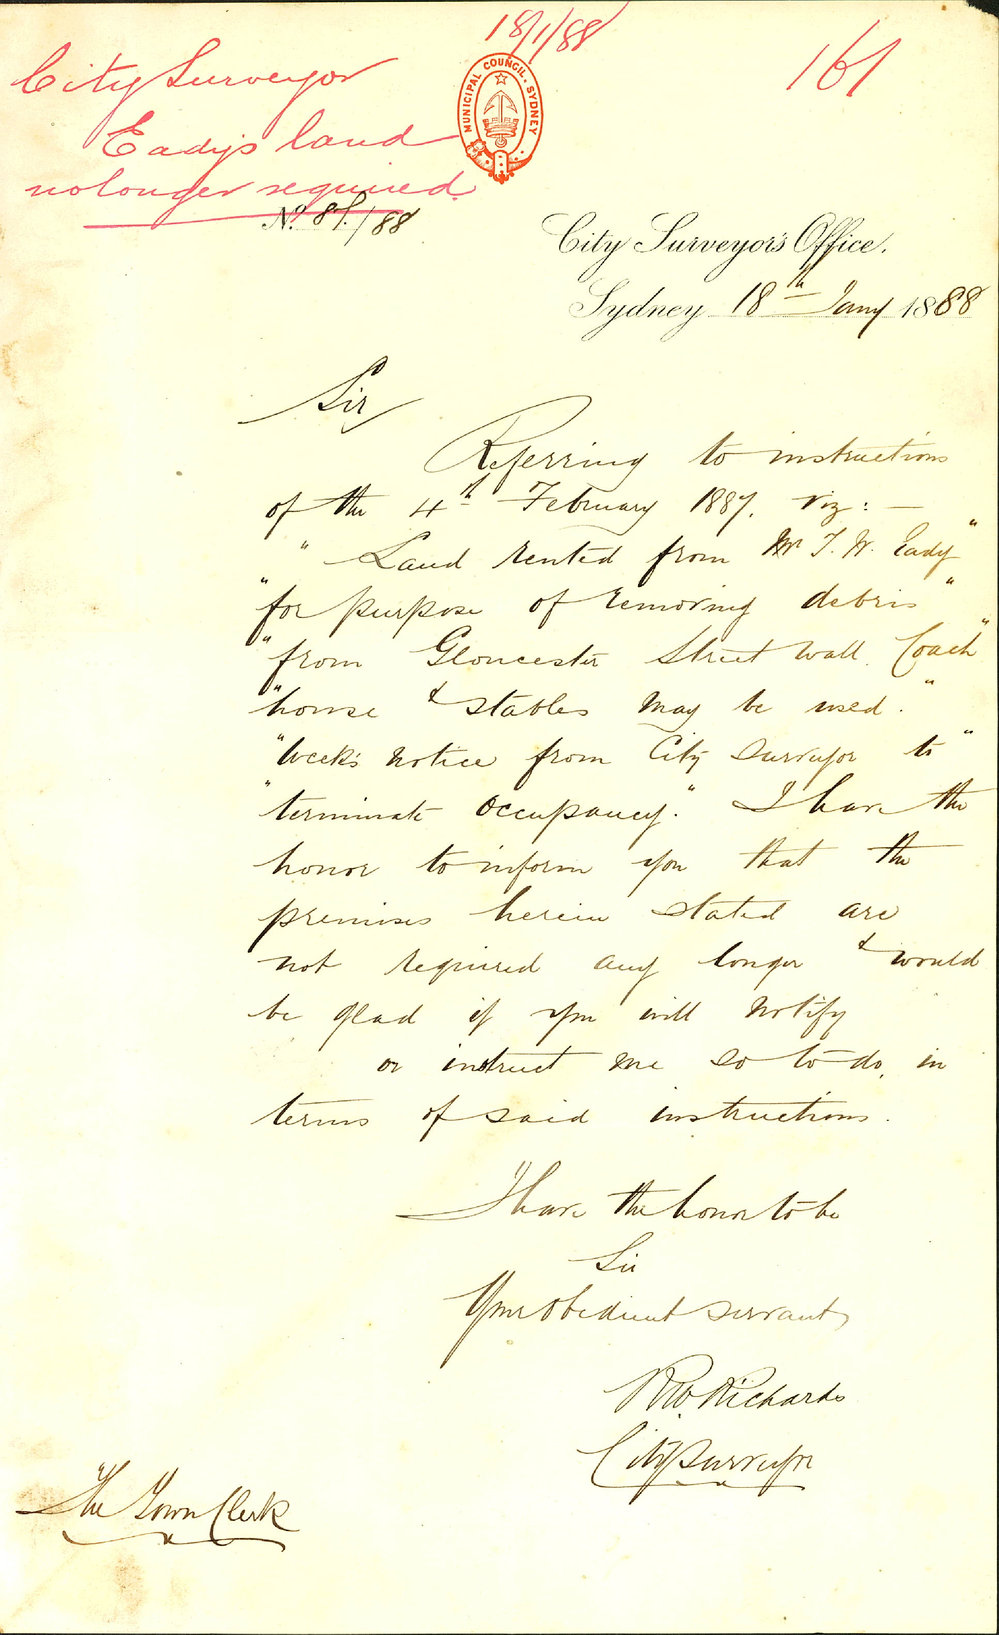 18/1/88
161
City Surveyor
Eady's land
no longer required
MUNICIPAL COUNCIL. SYDNEY
No. 81/88
City Surveyor's Office.
Sydney 18th Jany 1888
Sir
Referring to instructions
of the 4th February 1887. viz: —
" Land rented from Mr T. W. Eady "
" for purpose of removing debris "
" from Gloucester Street wall. Coach "
" house & stables may be used. "
" Week's notice from City Surveyor to "
" terminate occupancy." I have the
honor to inform you that the
premises herein stated are
not required any longer & would
be glad if you will notify
or instruct me so to do, in
terms of said instructions.
I have the honor to be
Sir
Your obedient servant
R W Richards
City Surveyor
The Town Clerk